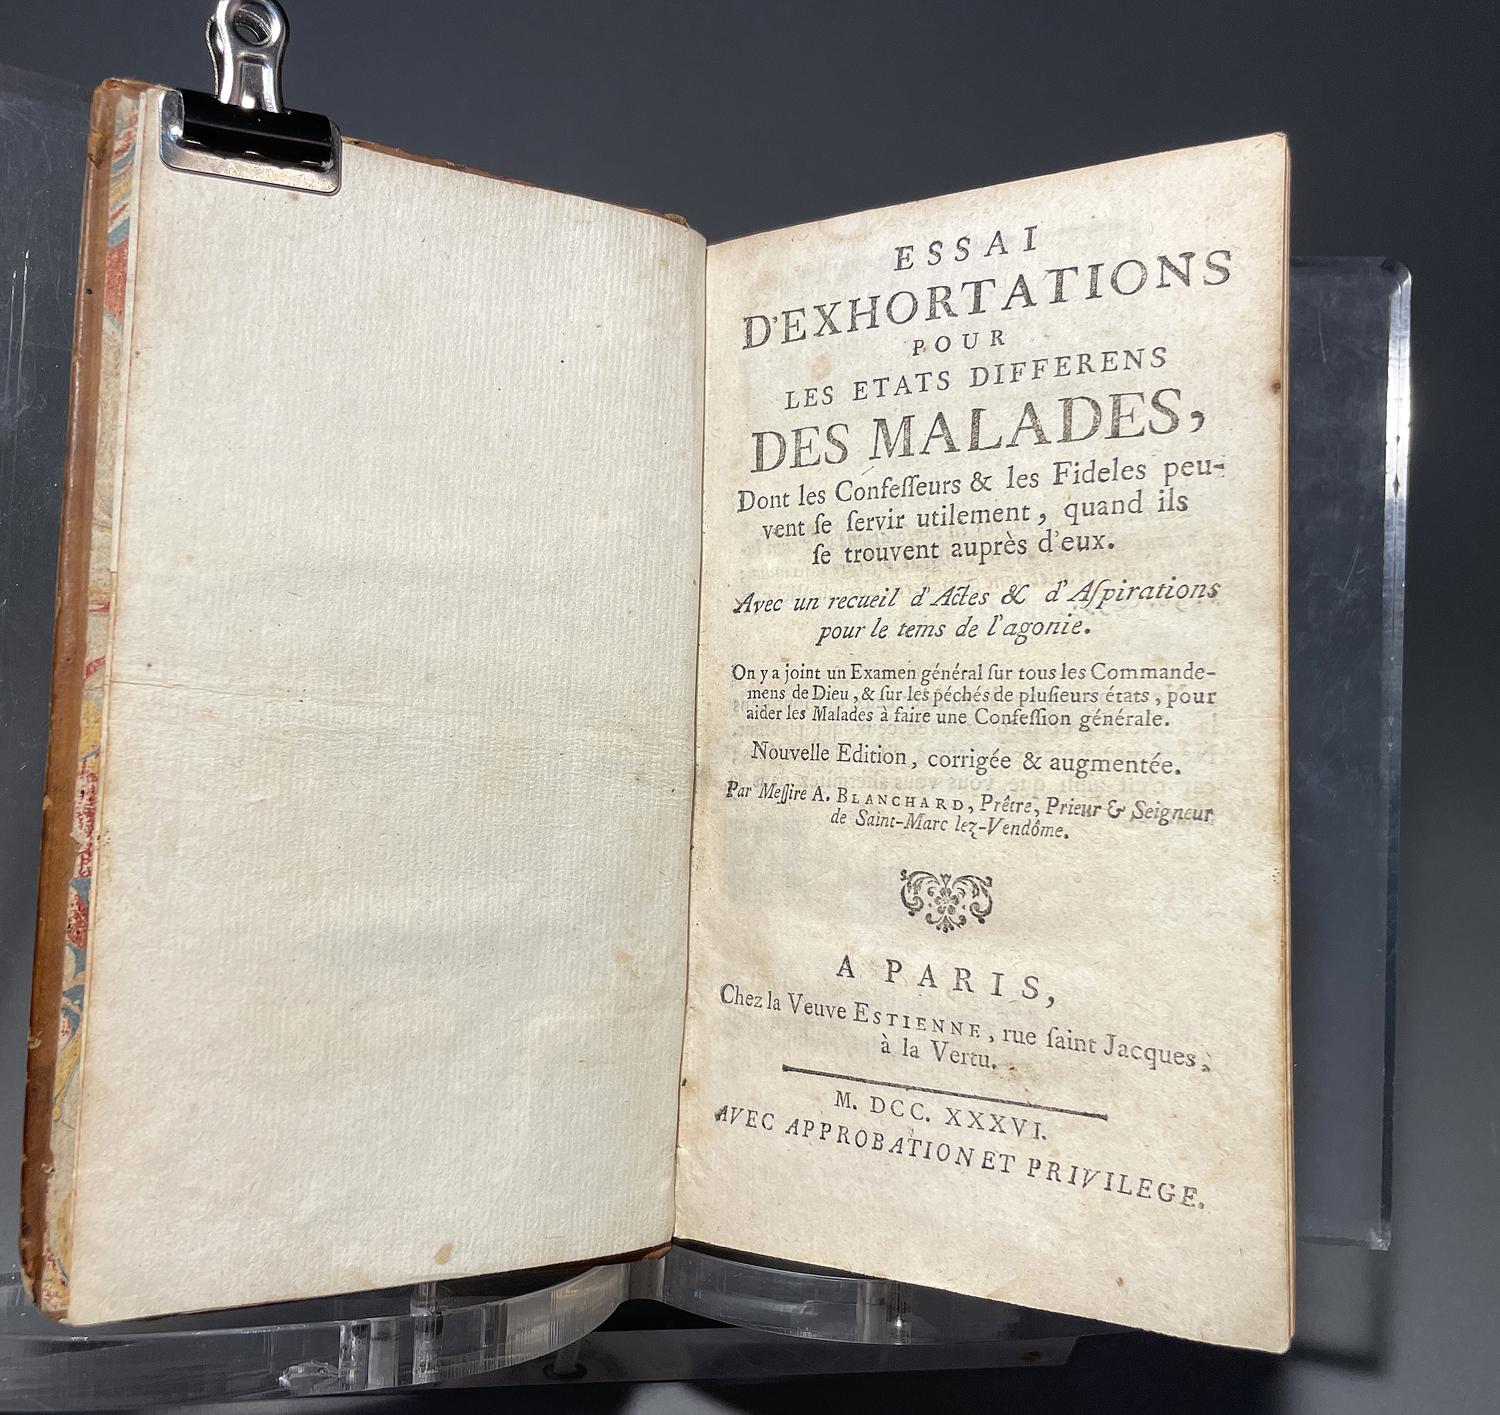 ESSAI
D'EXHORTATIONS
POUR
LES ETATS DIFFERENS
DES MALADES,
Dont les Confeſſeurs & les Fideles peu-
vent ſe ſervir utilement, quand ils
ſe trouvent auprès d'eux.
Avec un recueil d'Actes & d'Aſpirations
pour le tems de l'agonie.
On y a joint un Examen général ſur tous les Commande-
mens de Dieu, & ſur les péchés de pluſieurs états, pour
aider les Malades à faire une Confeſſion générale.
Nouvelle Edition, corrigée & augmentée.
Par Meſſire A. BLANCHARD, Prêtre, Prieur & Seigneur
de Saint-Marc lez-Vendôme.
A PARIS,
Chez la Veuve ESTIENNE, rue ſaint Jacques,
à la Vertu.
M. DCC. XXXVI.
AVEC APPROBATION ET PRIVILEGE.